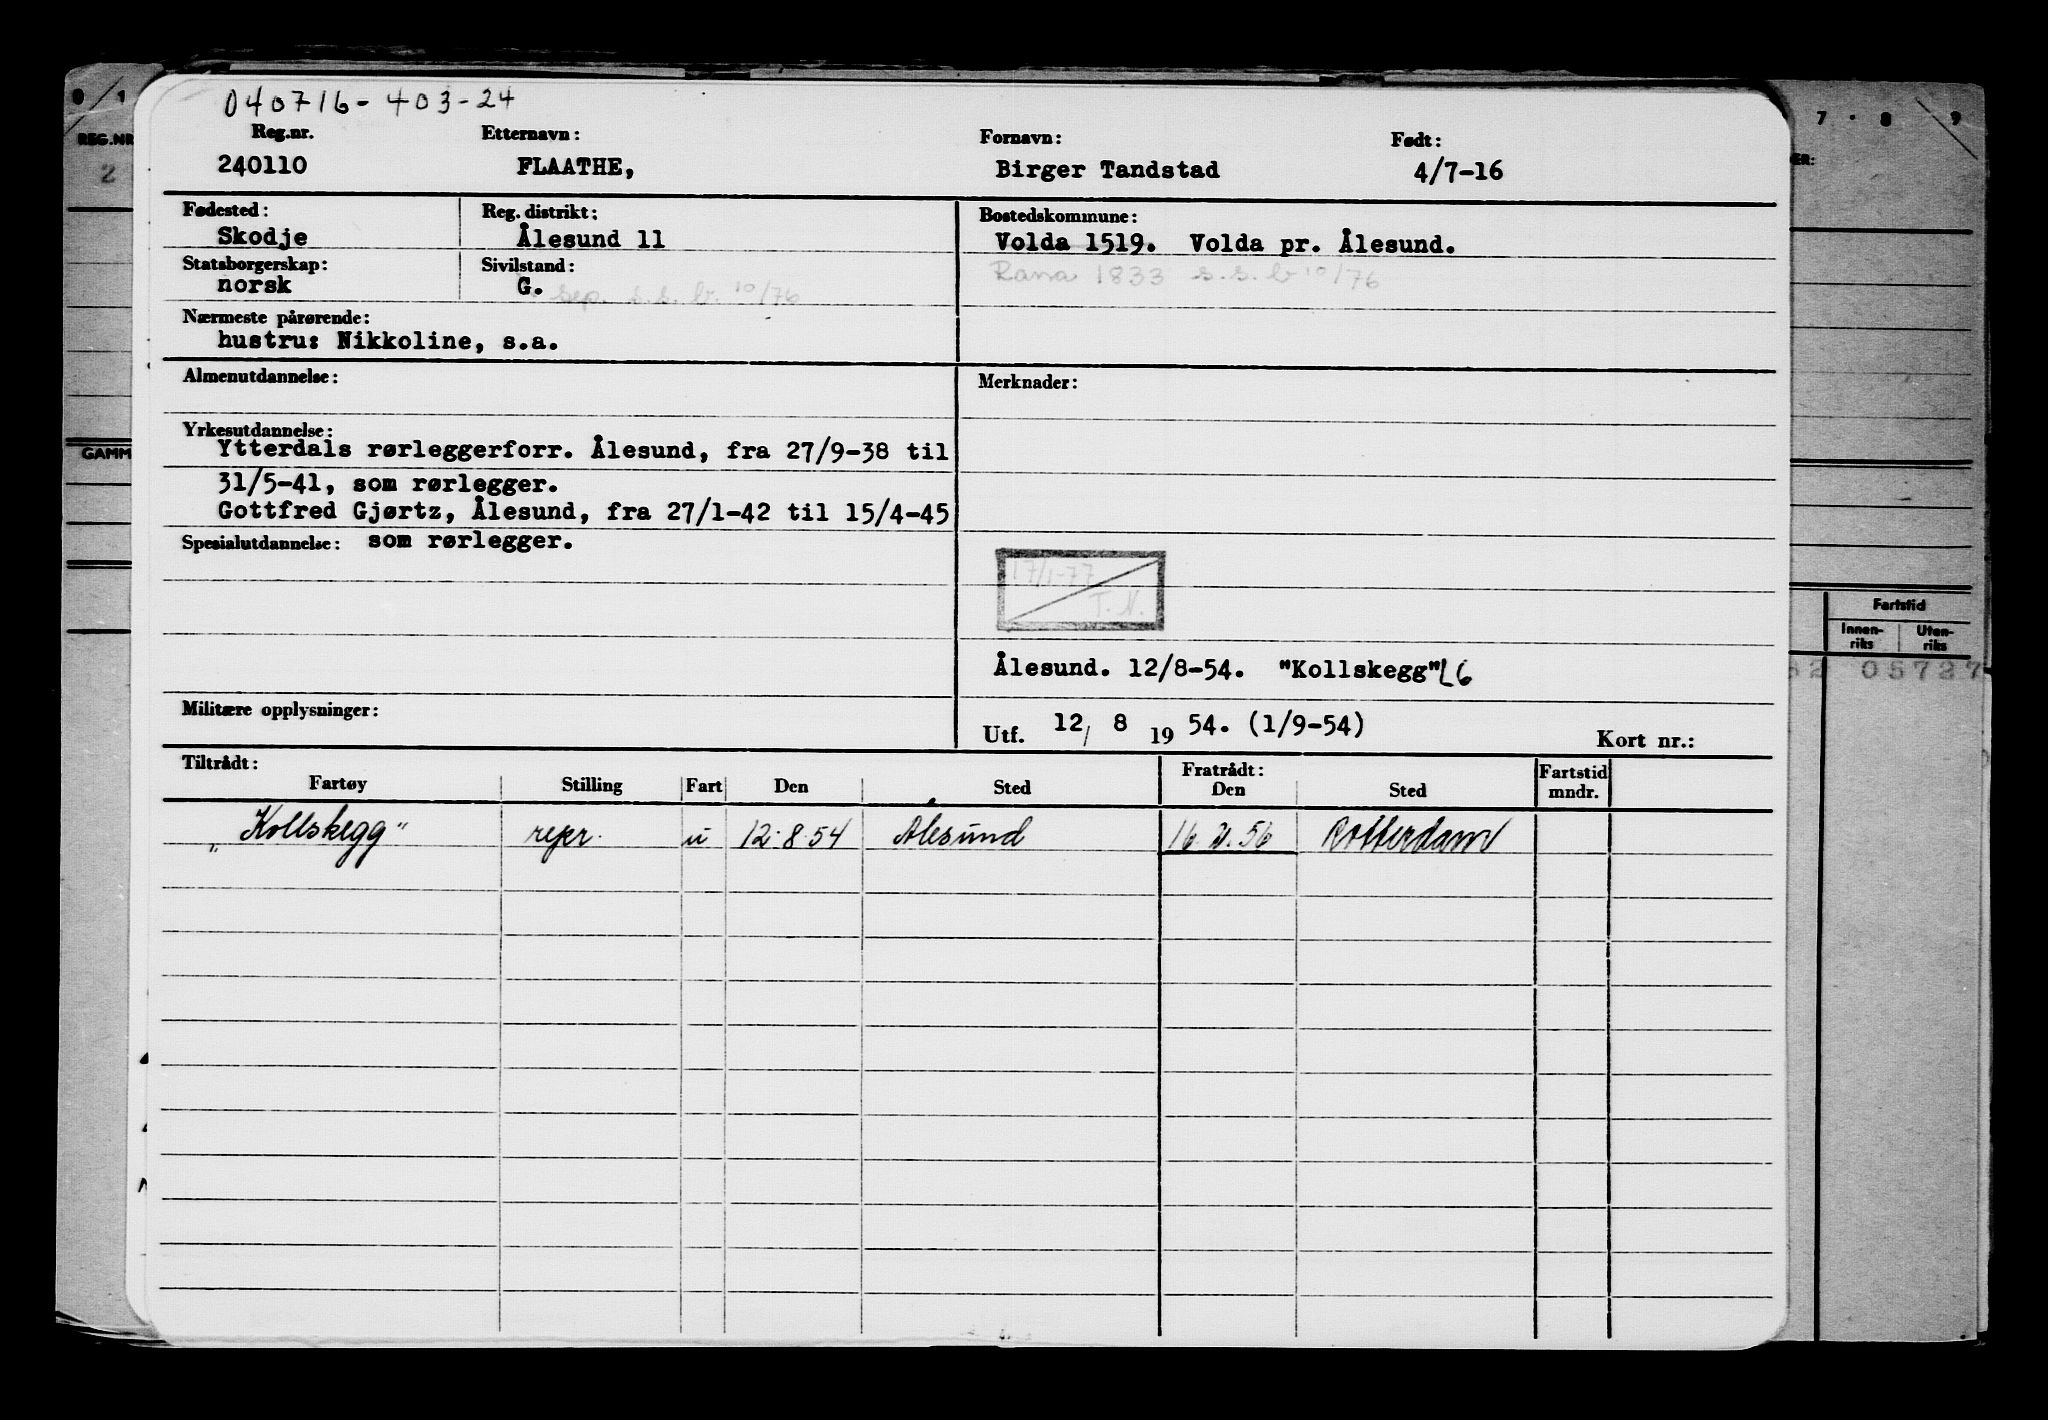 040716-403-24
Reg.nr. Etternavn: Fornavn: Født:
240110 FLAATHE, Birger Tandstad 4/7-16
Fødested: Reg. distrikt: Bostedskommune:
Skodje Ålesund 11 Volda 1519. Volda pr. Ålesund.
Statsborgerskap: Sivilstand: Rana 1833 s.s.br 10/76
norsk G. sep. s.s. br. 10/76
Nærmeste pårørende:
hustru: Nikkoline, s.a.
Almenutdannelse: Merknader:
Yrkesutdannelse:
Ytterdals rørleggerforr. Ålesund, fra 27/9-38 til
31/5-41, som rørlegger.
Gottfred Gjørtz, Ålesund, fra 27/1-42 til 15/4-45
Spesialutdannelse: som rørlegger.
17/1-77
T.N.
Ålesund. 12/8-54. "Kollskegg" L6
Militære opplysninger:
Utf. 12/ 8 19 54. (1/9-54) Kort nr.:
Tiltrådt: Fratrådt: Fartstid
Fartøy Stilling Fart Den Sted Den Sted mndr.
"Kollskegg" repr. u 12.8.54 Ålesund 16. 56 Rotterdam
0 1
REG.NR
2
GAMM
7 8 9
ER:
Fartstid
Innen-riks Uten-riks
05727